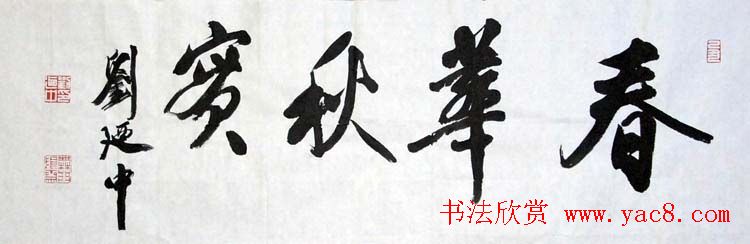 春華秋實
劉延中
书法欣赏 www.yac8.com